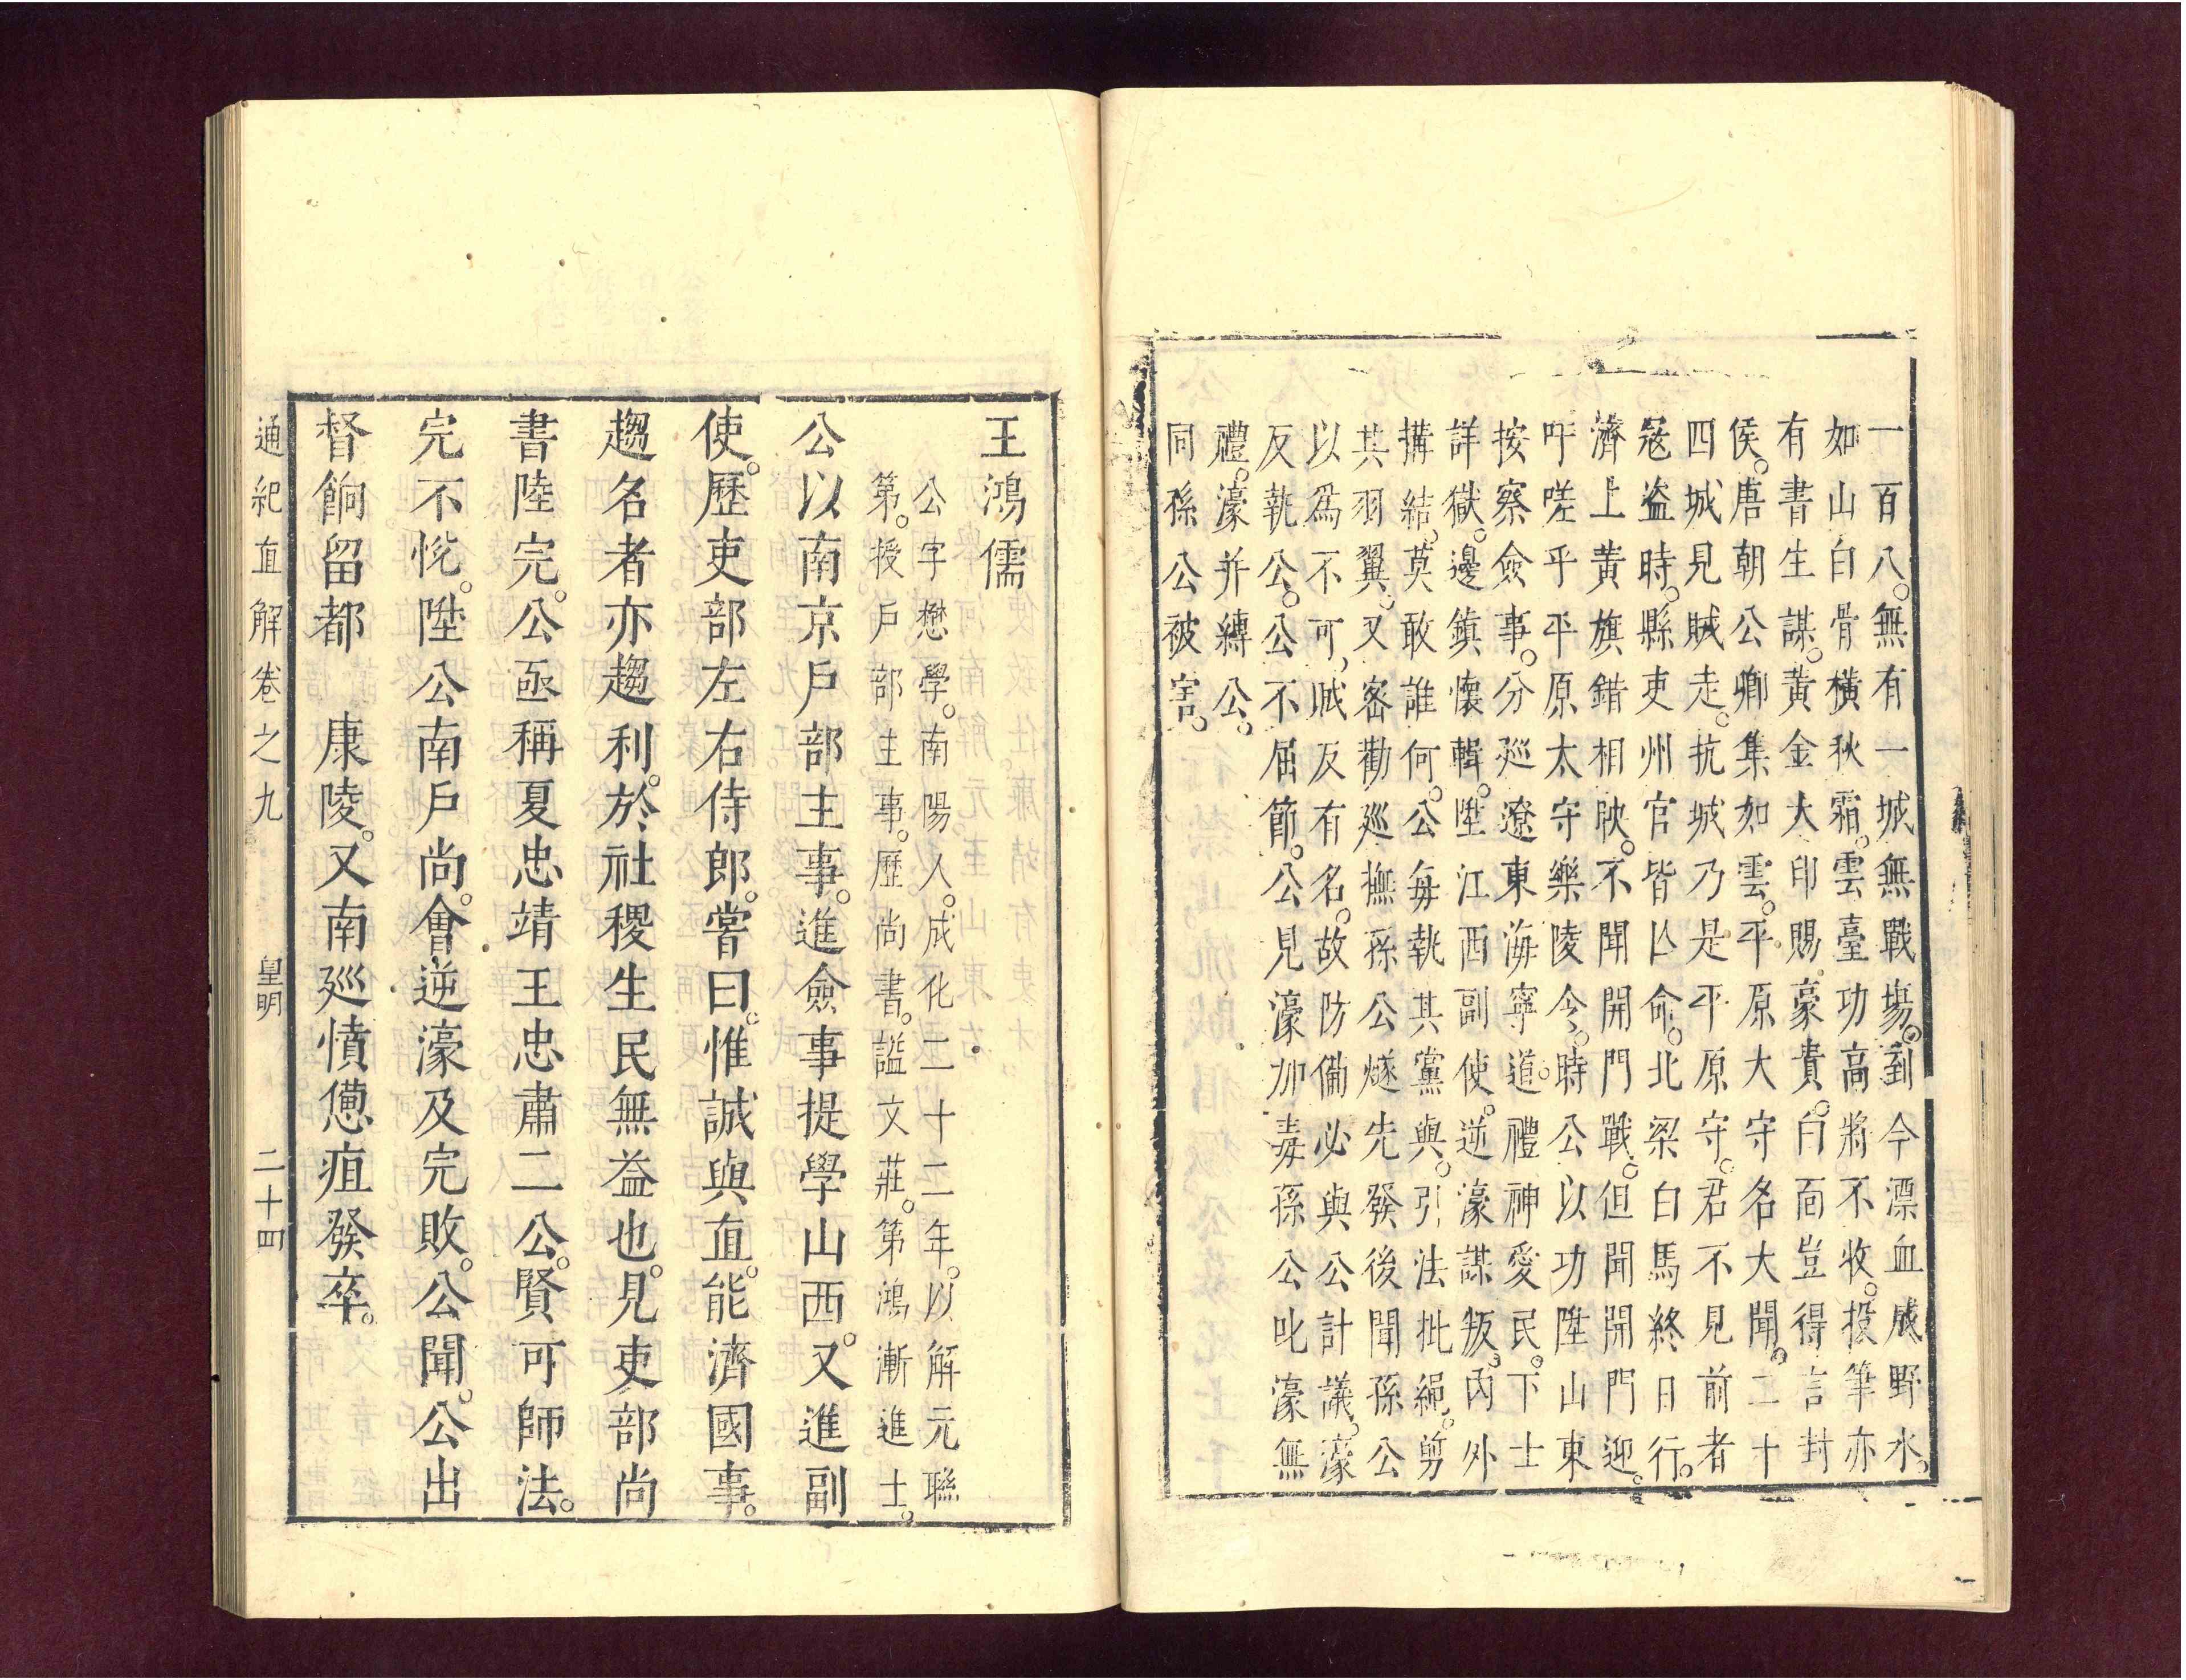 一百八。無有一城無戰場。到今漂血成野水。
如山白骨橫秋霜。雲臺功高將不收。投筆亦
有書生謀。黃金大印賜豪貴。白面豈得言封
侯。唐朝公卿集如雲。平原大守名大聞。二十
四城見賊走。抗城乃是平原守。君不見前者
寇盗時。縣吏州官皆亾命。北梁白馬終日行。
濟上黃旗錯相映。不聞開門戰。但聞開門迎。
吁嗟乎平原太守樂陵令。時公以功陞山東
按察僉事。分廵遼東海寧道。禮神愛民。下士
詳獄。邊鎮懷輯。陞江西副使。逆濠謀叛。內外
搆結。莫敢誰何。公每執其黨與。引法批繩。剪
其羽翼。又密勸廵撫孫公燧先發後聞孫公
以爲不可。賊反有名。故防備必與公計議。濠
反執公。公不屈節。公見濠加毒孫公叱濠無
禮。濠并縛公。
同孫公被害。
王鴻儒
公字懋學。南陽人。成化二十二年。以解元聯
第。授戶部主事。歷尚書。謚文莊。第鴻漸進士。
公以南京戶部主事。進僉事提學山西。又進副
使。歷吏部左右侍郎。嘗曰。惟誠與直。能濟國事。
趨名者亦趨利。於社稷生民無益也。見吏部尚
書陸完。公亟稱夏忠靖王忠肅二公。賢可師法。
完不悅。陞公南戶尚。會逆濠及完敗。公聞。公出
督餉留都　康陵。又南廵憤憊疽發卒。
通紀直解卷之九　皇明　二十四